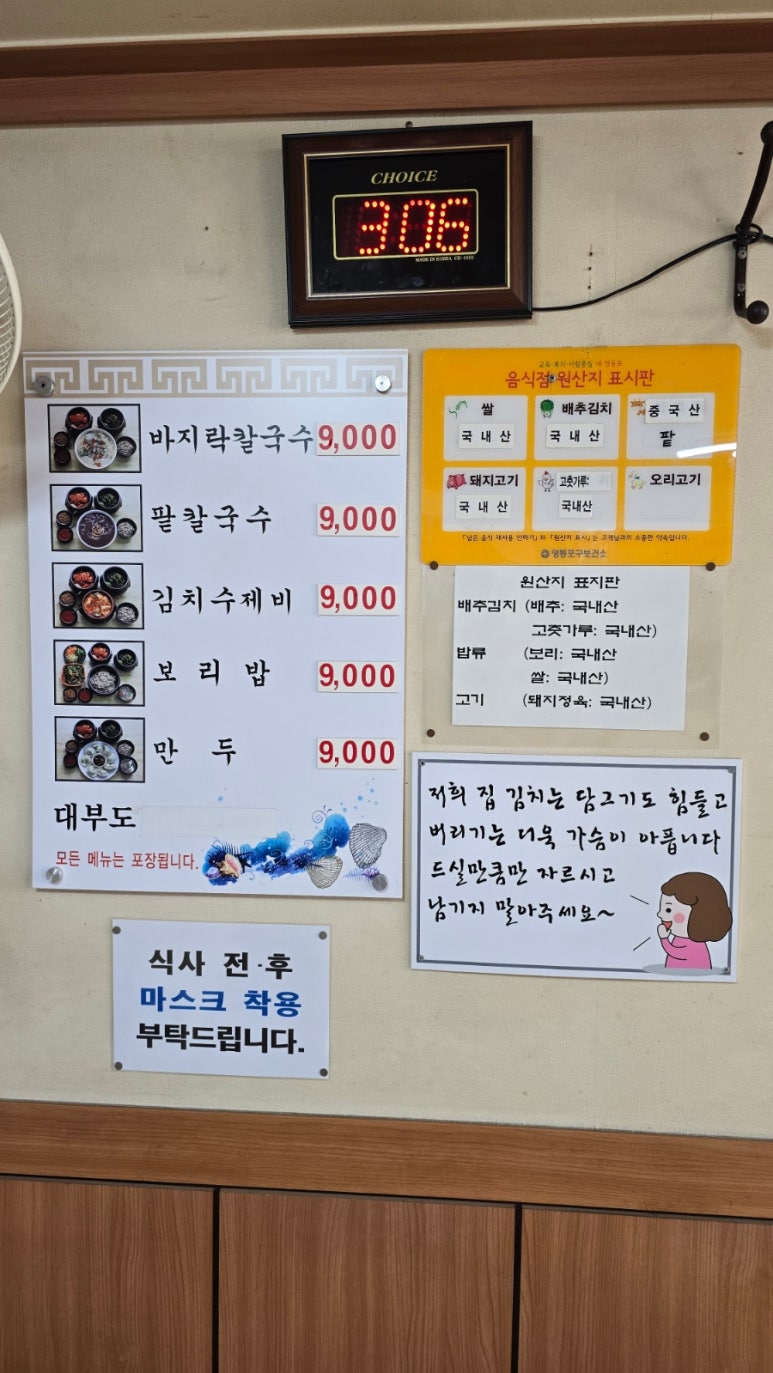 CHOICE
3 06
MADE IN KOREA
바지락칼국수 9,000
팥칼국수 9,000
김치수제비 9,000
보리밥 9,000
만두 9,000
대부도
모든 메뉴는 포장됩니다.
음식점 원산지 표시판
쌀
국내산
배추김치
국내산
중국산
팥
돼지고기
국내산
고춧가루
국내산
오리고기
『남은 음식 재사용 안하기』와 『원산지 표시』는 고객님과의 소중한 약속입니다.
영등포구보건소
원산지 표지판
배추김치 (배추: 국내산
고춧가루: 국내산)
밥류 (보리: 국내산
쌀: 국내산)
고기 (돼지정육: 국내산)
저희 집 김치는 담그기도 힘들고
버리기는 더욱 가슴이 아픕니다
드실만큼만 자르시고
남기지 말아주세요~
식사 전·후
마스크 착용
부탁드립니다.